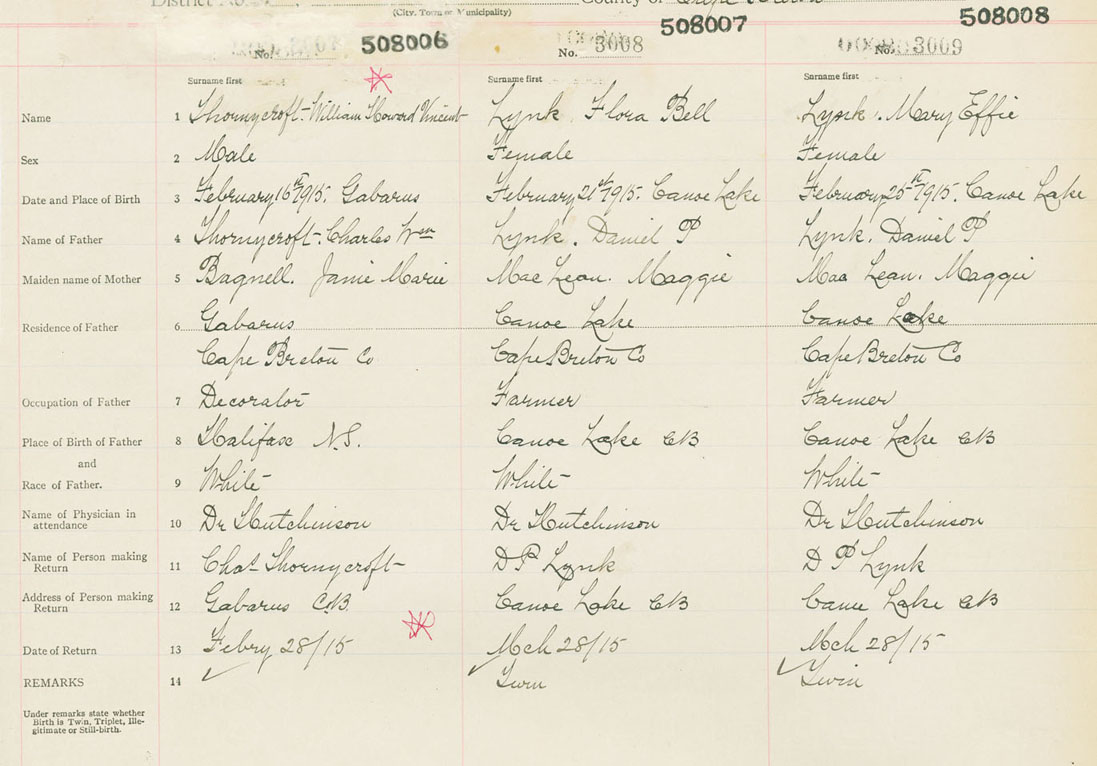 District No.
County of Cape Breton
(City, Town or Municipality)
508006
508007
508008
No. 3007
No. 3008
No. 3009
Surname first
Surname first
Surname first
Name 1 Thornycroft William Howard Vincent Lynk. Flora Bell Lynk. Mary Effie
Sex 2 Male Female Female
Date and Place of Birth 3 February 16th 1915. Gabarus February 21st 1915. Canoe Lake February 25th 1915. Canoe Lake
Name of Father 4 Thornycroft. Charles Wm Lynk. Daniel P Lynk. Daniel P
Maiden name of Mother 5 Bagnell. Janie Marie Mac Lean. Maggie Mac Lean. Maggie
Residence of Father 6 Gabarus Canoe Lake Canoe Lake
Cape Breton Co Cape Breton Co Cape Breton Co
Occupation of Father 7 Decorator Farmer Farmer
Place of Birth of Father 8 Halifax N.S. Canoe Lake CB Canoe Lake CB
and
Race of Father. 9 White White White
Name of Physician in
attendance 10 Dr Hutchinson Dr Hutchinson Dr Hutchinson
Name of Person making
Return 11 Chas Thornycroft D P Lynk D P Lynk
Address of Person making
Return 12 Gabarus C.B. Canoe Lake CB Canoe Lake CB
Date of Return 13 Febry 28/15 Mch 28/15 Mch 28/15
REMARKS 14 Twin Twin
Under remarks state whether
Birth is Twin, Triplet, Ille-
gitimate or Still-birth.